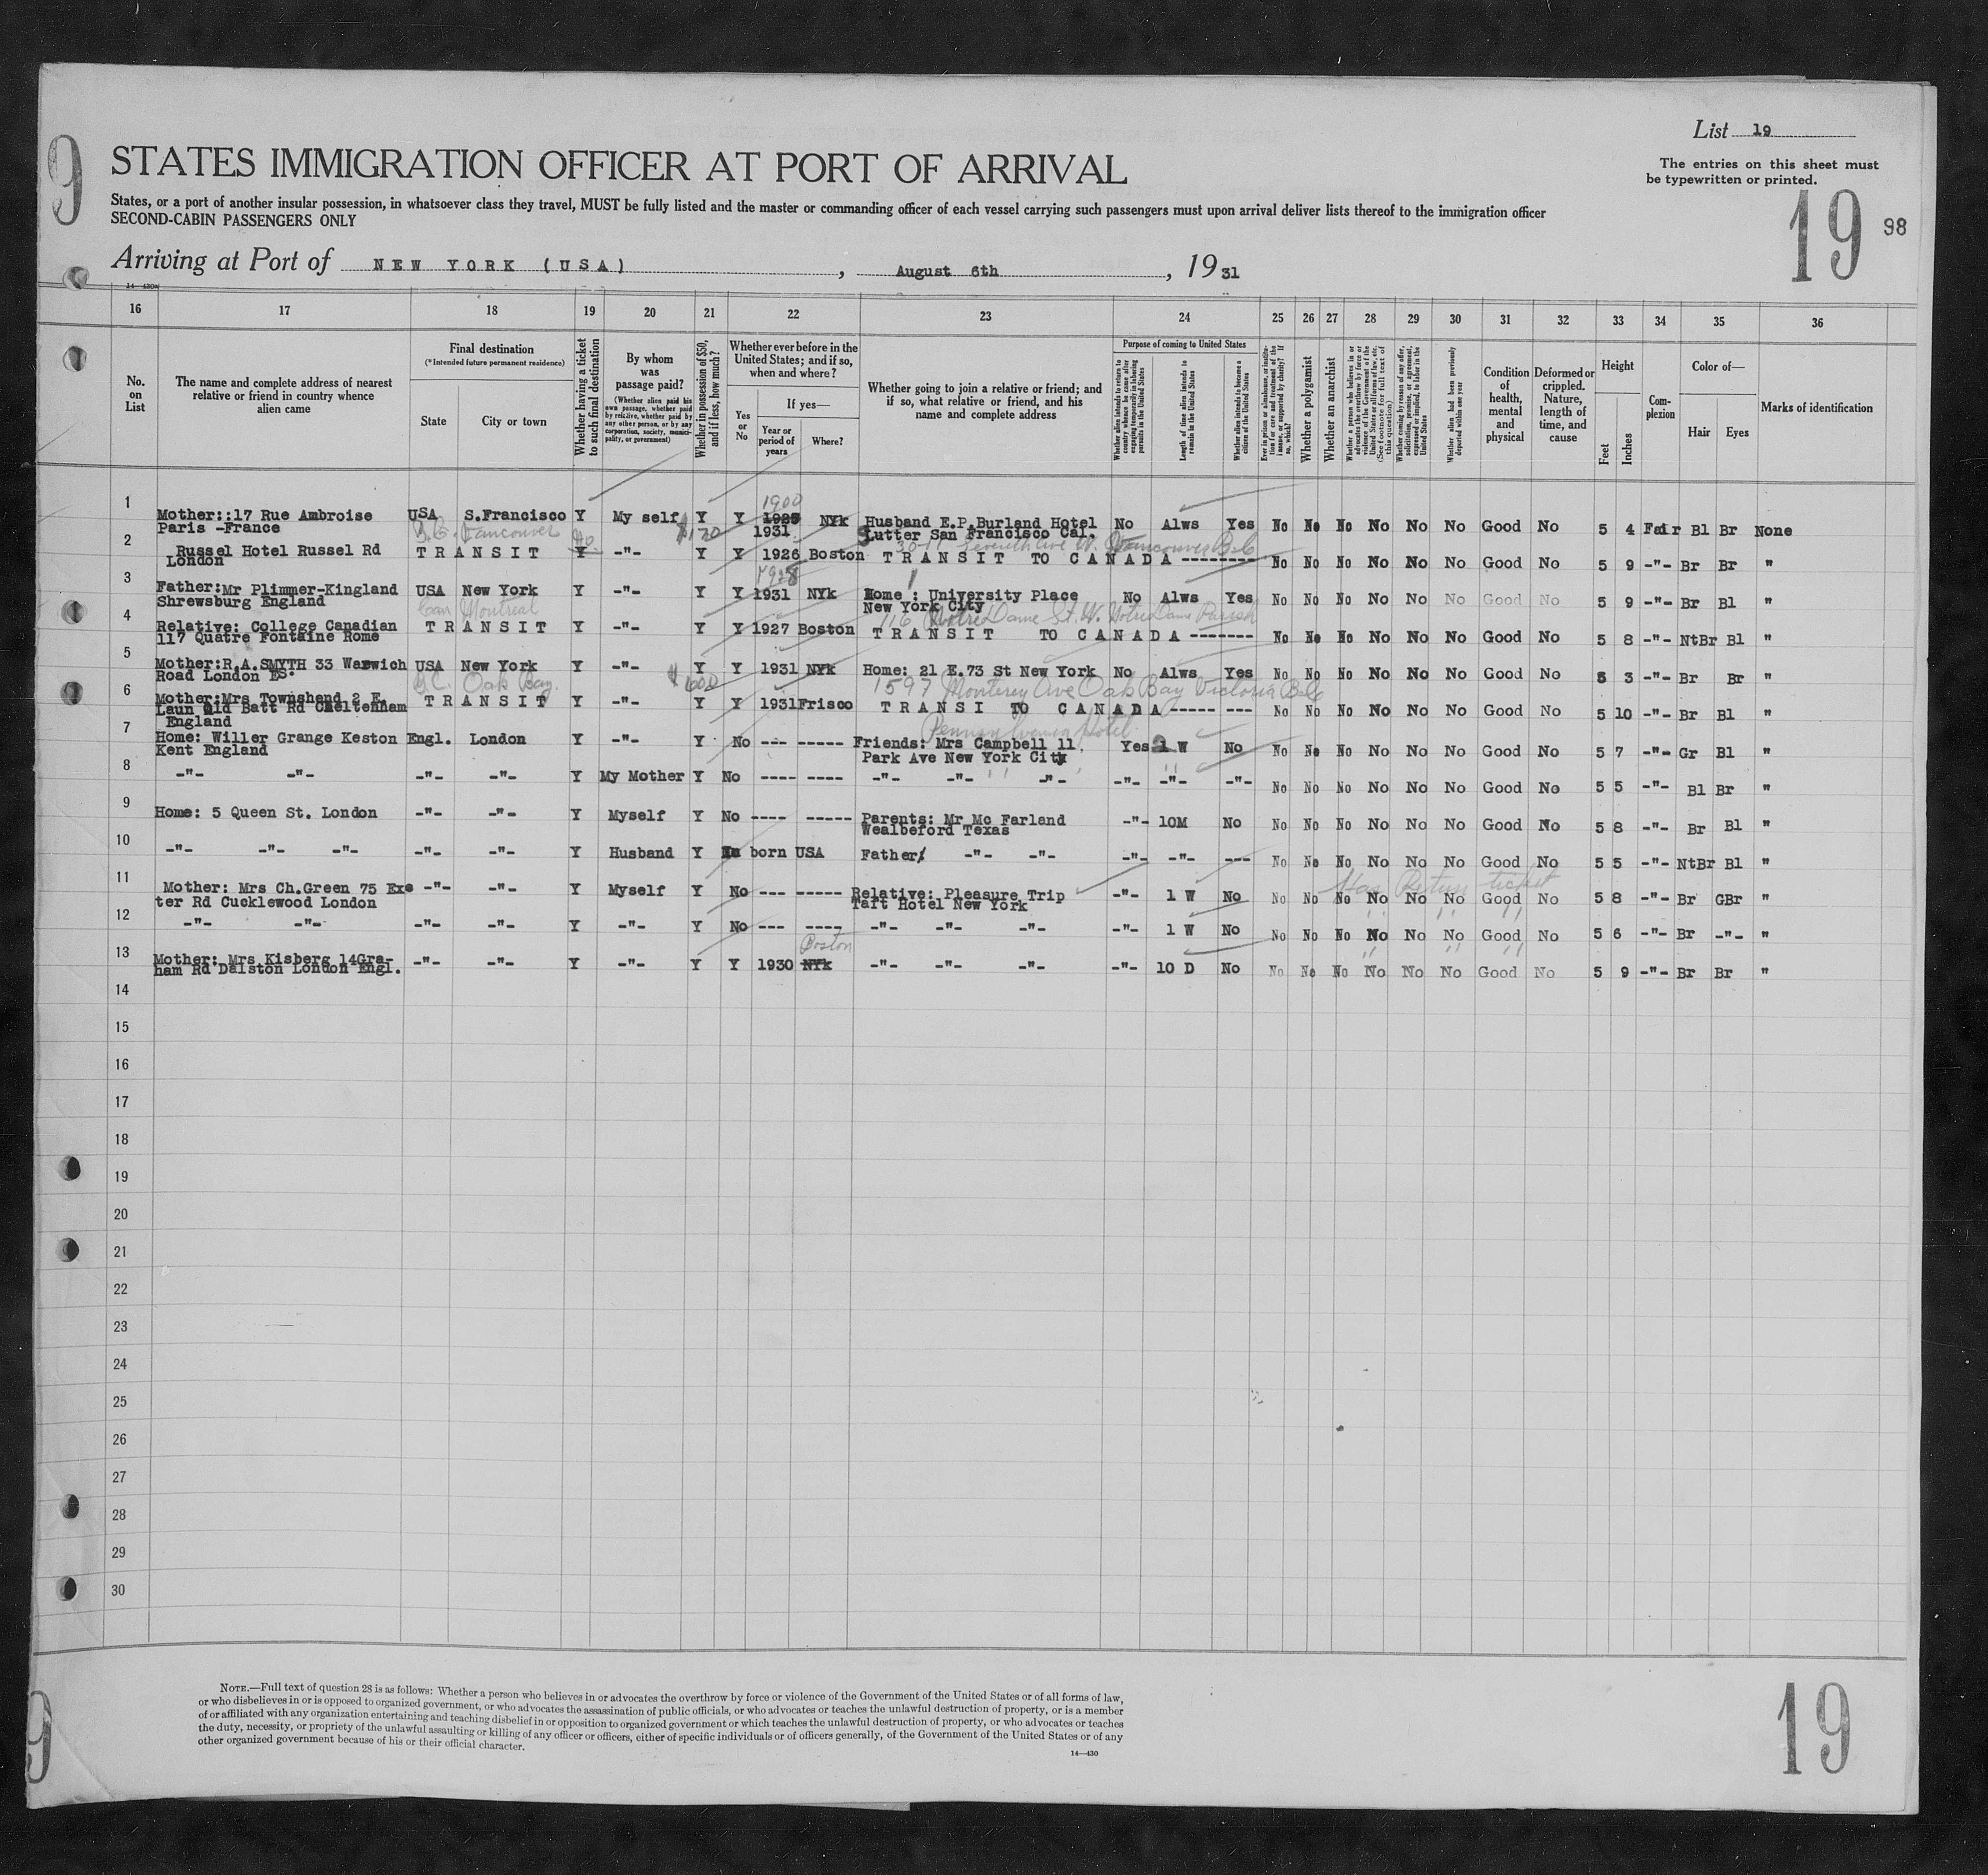 List 19
The entries on this sheet must
be typewritten or printed.
9
STATES IMMIGRATION OFFICER AT PORT OF ARRIVAL
19 98
States, or a port of another insular possession, in whatsoever class they travel, MUST be fully listed and the master or commanding officer of each vessel carrying such passengers must upon arrival deliver lists thereof to the immigration officer
SECOND-CABIN PASSENGERS ONLY
Arriving at Port of NEW YORK (USA), August 6th, 1931
14—430A
16 17 18 19 20 21 22 23 24 25 26 27 28 29 30 31 32 33 34 35 36
No. on List
The name and complete address of nearest relative or friend in country whence alien came
Final destination
(*Intended future permanent residence)
State
City or town
Whether having a ticket to such final destination
By whom was passage paid?
(Whether alien paid his own passage, whether paid by relative, whether paid by any other person, or by any corporation, society, municipality, or government)
Whether in possession of $50, and if less, how much?
Whether ever before in the United States; and if so, when and where?
Yes or No
If yes—
Year or period of years
Where?
Whether going to join a relative or friend; and if so, what relative or friend, and his name and complete address
Purpose of coming to United States
Whether alien intends to return to country whence he came after engaging temporarily in laboring pursuits in the United States
Length of time alien intends to remain in the United States
Whether alien intends to become a citizen of the United States
Ever in prison or almshouse, or institution for care and treatment of the insane, or supported by charity? If so, which?
Whether a polygamist
Whether an anarchist
Whether a person who believes in or advocates the overthrow by force or violence of the Government of the United States or all forms of law, etc. (See footnote for full text of this question)
Whether coming by reason of any offer, solicitation, promise, or agreement, expressed or implied, to labor in the United States
Whether alien had been previously deported within one year
Condition of health, mental and physical
Deformed or crippled. Nature, length of time, and cause
Height
Feet
Inches
Complexion
Color of—
Hair
Eyes
Marks of identification
1 Mother::17 Rue Ambroise USA S.Francisco Y My self Y Y 1900 1925 NYk Husband E.P.Burland Hotel No Alws Yes No No No No No No Good No 5 4 Fair Bl Br None
Paris -France 1931 Sutter San Francisco Cal.
B.C. Vancouver No $120 Seventh Ave W. Vancouver B.C.
2 Russel Hotel Russel Rd TRANSIT Y -"- Y Y 1926 Boston TRANSIT TO CANADA -------- No No No No No No Good No 5 9 -"- Br Br "
London
1928
3 Father:Mr Plimmer-Kingland USA New York Y -"- Y Y 1931 NYk Home : University Place No Alws Yes No No No No No No Good No 5 9 -"- Br Bl "
Shrewsburg England New York City
Can Montreal 116 Notre Dame St. W. Notre Dame Parish
4 Relative: College Canadian TRANSIT Y -"- Y Y 1927 Boston TRANSIT TO CANADA ------- No No No No No No Good No 5 8 -"- NtBr Bl "
117 Quatre Fontaine Rome
5 Mother:R.A.SMYTH 33 Warwich USA New York Y -"- Y Y 1931 NYk Home: 21 E.73 St New York No Alws Yes No No No No No No Good No 5 3 -"- Br Br "
Road London ES.
B.C. Oak Bay $600 1597 Monterey Ave Oak Bay Victoria B.C.
6 Mother:Mrs Townshend 2 E. TRANSIT Y -"- Y Y 1931 Frisco TRANSI TO CANADA ----- --- No No No No No No Good No 5 10 -"- Br Bl "
Laun Mid Batt Rd Cheltenham
England
Pennsylvania Hotel
7 Home: Willer Grange Keston Engl. London Y -"- Y No --- ----- Friends: Mrs Campbell 11, Yes W No No No No No No No Good No 5 7 -"- Gr Bl "
Kent England Park Ave New York City
8 -"- -"- -"- -"- Y My Mother Y No ---- ---- -"- -"- -"- -"- -"- -"- No No No No No No Good No 5 5 -"- Bl Br "
9 Home: 5 Queen St. London -"- -"- Y Myself Y No ---- ----- Parents: Mr Mc Farland -"- 10M No No No No No No No Good No 5 8 -"- Br Bl "
Wealbeford Texas
10 -"- -"- -"- -"- -"- Y Husband Y born USA Father -"- -"- -"- -"- --- No No No No No No Good No 5 5 -"- NtBr Bl "
Has Return ticket
11 Mother: Mrs Ch.Green 75 Exe -"- -"- Y Myself Y No --- ----- Relative: Pleasure Trip -"- 1 W No No No No No No No Good No 5 8 -"- Br GBr "
ter Rd Cucklewood London Taft Hotel New York
12 -"- -"- -"- -"- Y -"- Y No --- ---- -"- -"- -"- -"- 1 W No No No No No No No Good No 5 6 -"- Br -"- "
Boston
13 Mother: Mrs Kisberg 14Gra- -"- -"- Y -"- Y Y 1930 NYk -"- -"- -"- -"- 10 D No No No No No No No Good No 5 9 -"- Br Br "
ham Rd Dalston London Engl.
14
15
16
17
18
19
20
21
22
23
24
25
26
27
28
29
30
NOTE.—Full text of question 28 is as follows: Whether a person who believes in or advocates the overthrow by force or violence of the Government of the United States or of all forms of law,
or who disbelieves in or is opposed to organized government, or who advocates the assassination of public officials, or who advocates or teaches the unlawful destruction of property, or is a member
of or affiliated with any organization entertaining and teaching disbelief in or opposition to organized government or which teaches the unlawful destruction of property, or who advocates or teaches
the duty, necessity, or propriety of the unlawful assaulting or killing of any officer or officers, either of specific individuals or of officers generally, of the Government of the United States or of any
other organized government because of his or their official character.
14—430
9
19